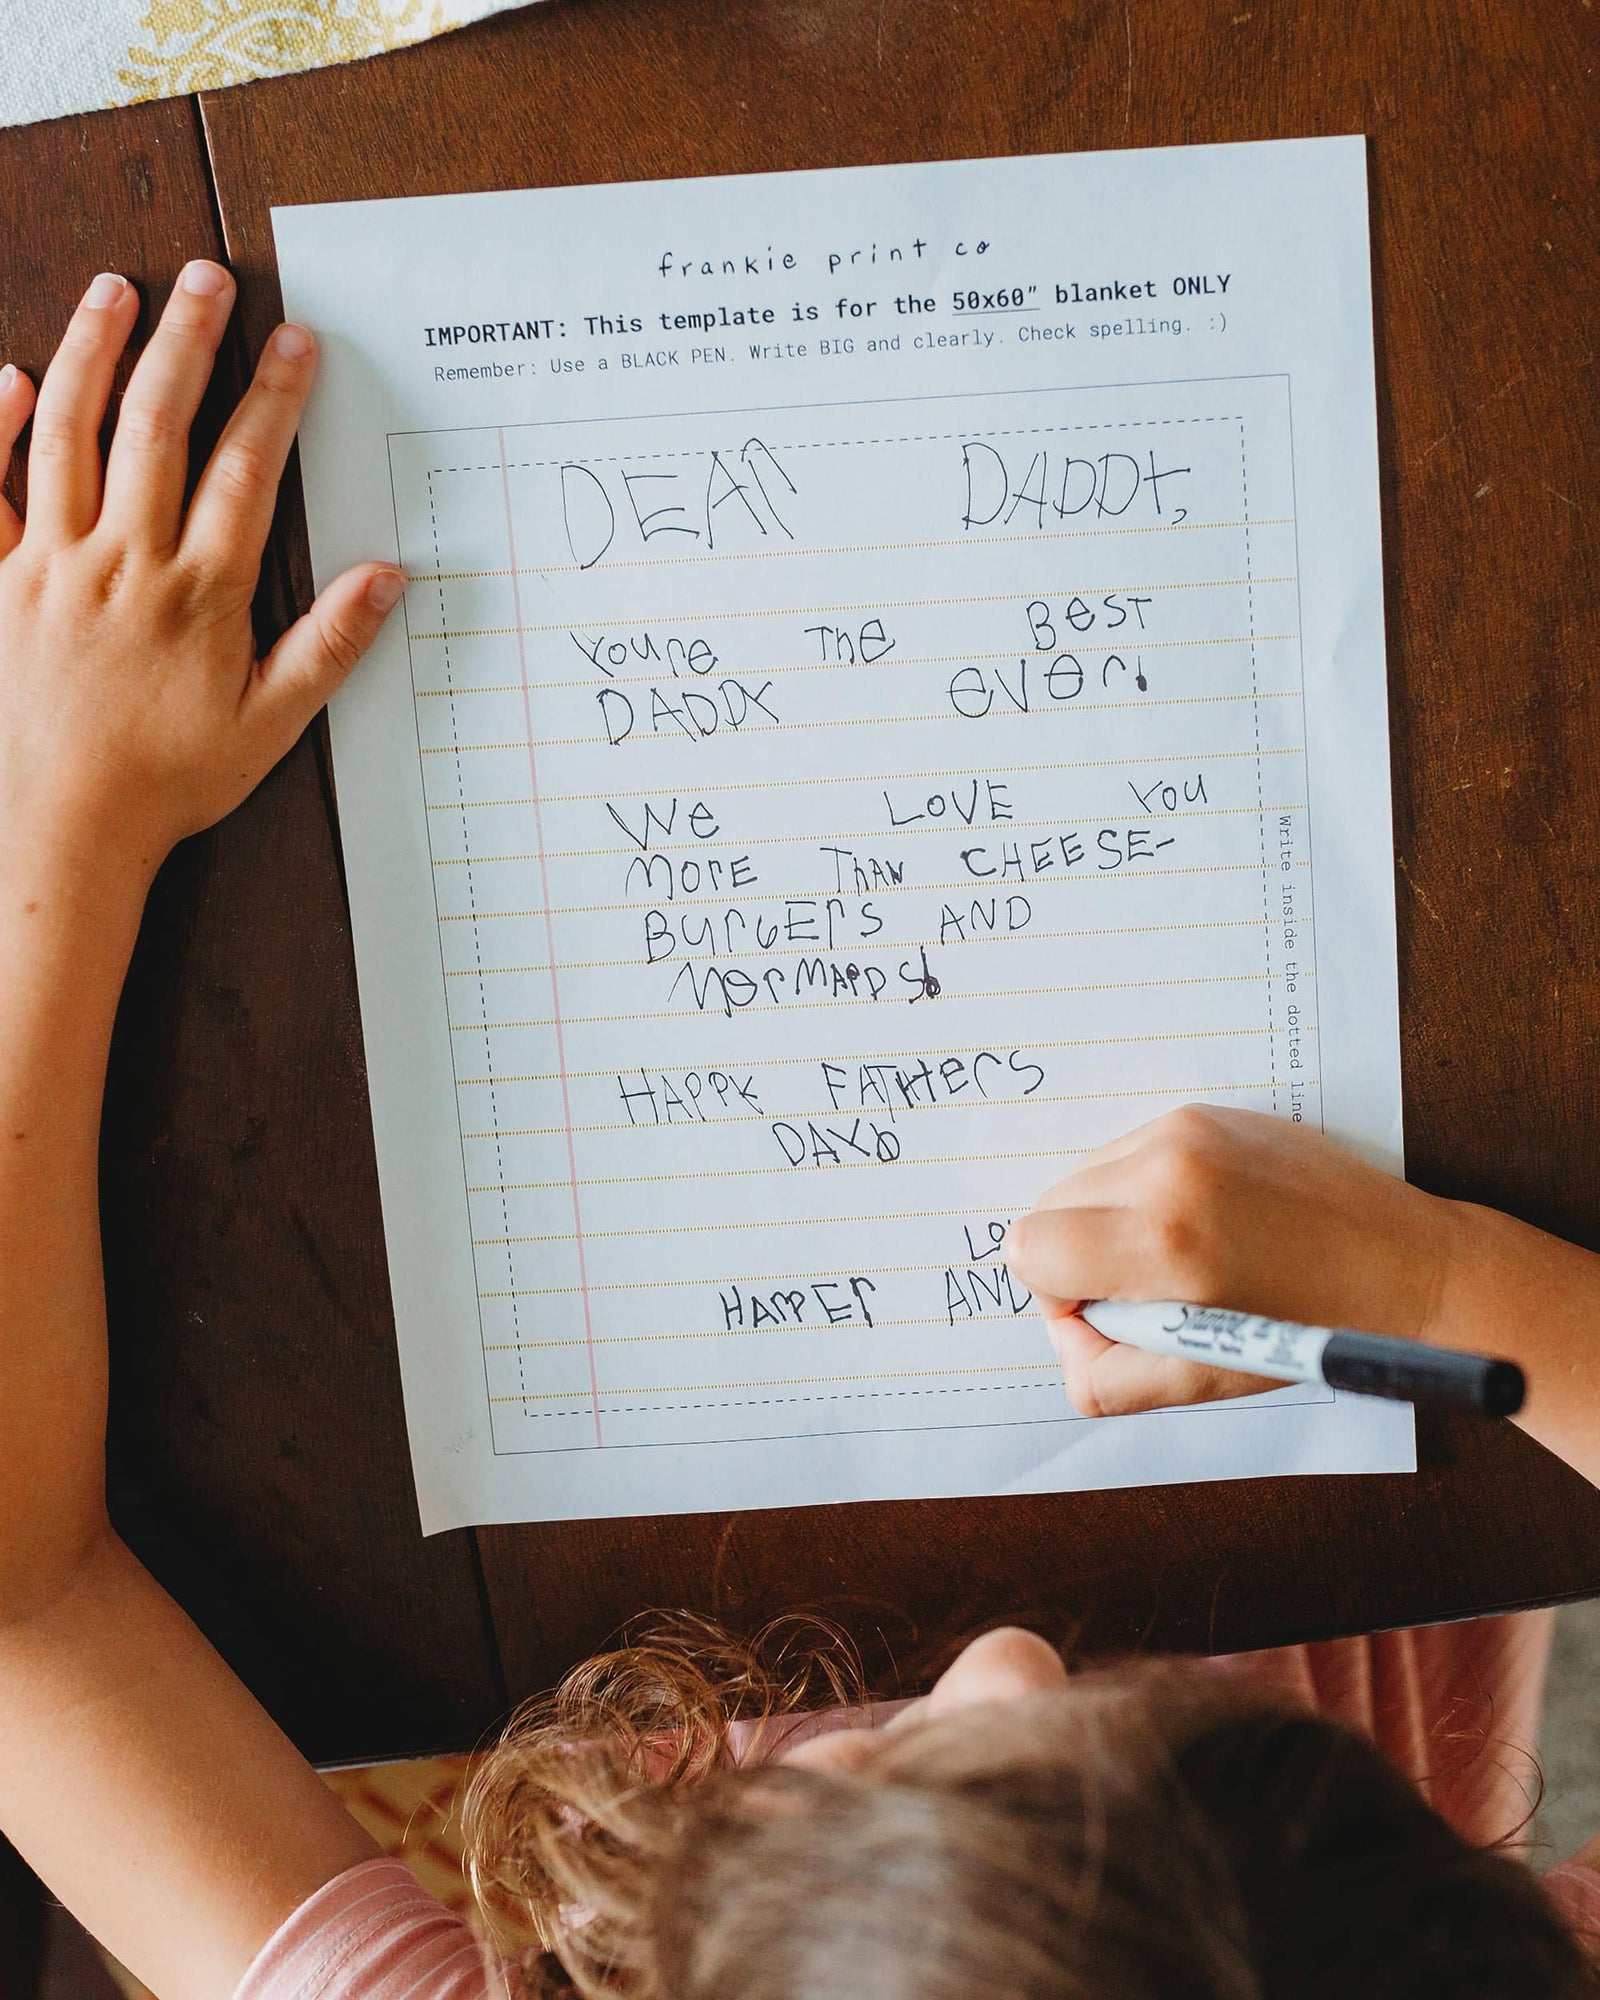 frankie print co
IMPORTANT: This template is for the 50x60" blanket ONLY
Remember: Use a BLACK PEN. Write BIG and clearly. Check spelling. :)
DEAr DADDY,
Youre The BeST
DADDY ever!
We LOVE YOU
MOrE ThAN CHEESE-
BUrGErS AND
MerMAIDS!
HAPPY FATHerS
DAY!
Lo
HArPEr AND
Write inside the dotted line
Sharpie